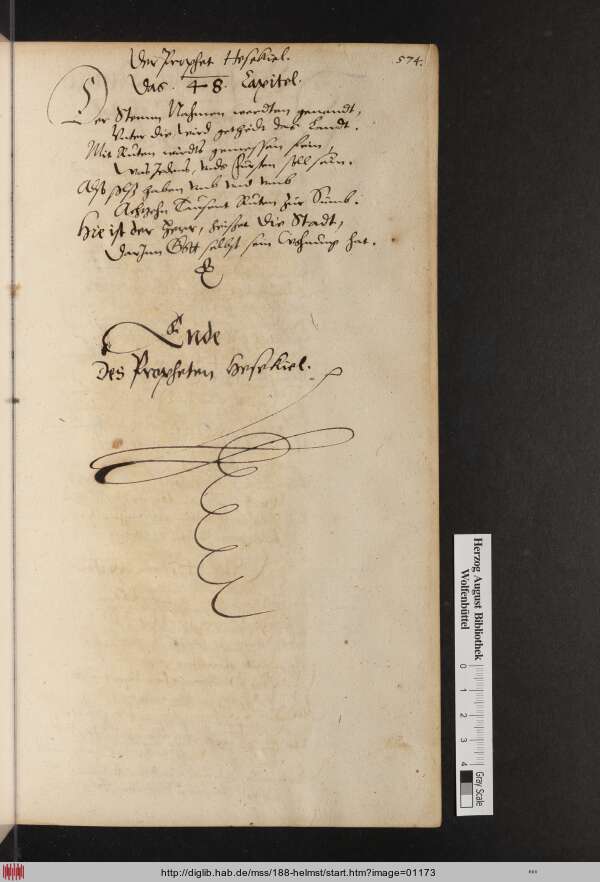 Der Prophet Hesekiel.
574.
Das. 48. Capitel.
Der Stemm Nahmen werdten genandt,
Unter die wird getheilt das Landt.
Mit Ruten wirdts gemessen fein,
Was Jedens, unds Fürsten soll sein.
Alß haben umb und umb
Achtzehn Tausent Ruten zur Summ:
Hie ist der Herr, heißet die Stadt,
Darinn Gott selbst sein Wohnung hat.
Ende
Des Propheten Hesekiel.
Herzog August Bibliothek
Wolfenbüttel
0 1 2 3 4
Gray Scale
http://diglib.hab.de/mss/188-helmst/start.htm?image=01173